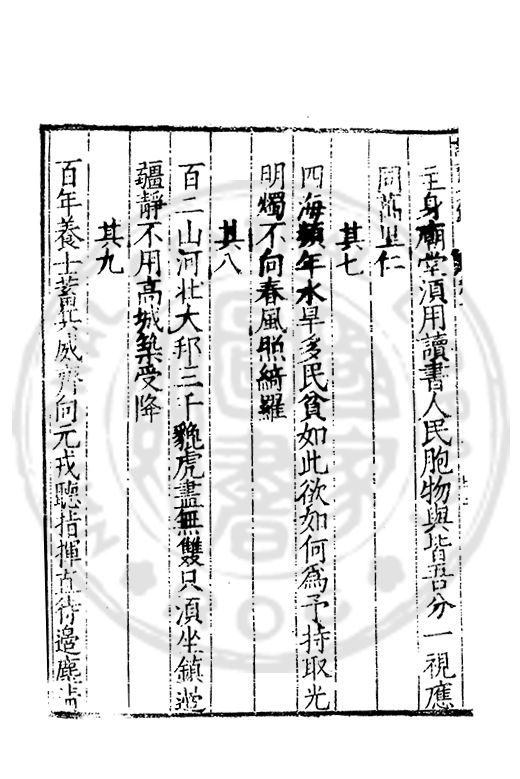 主身廟堂湏用讀書人民胞物與皆吾分一視應
同萬里仁
其七
四海頻年水旱多民貧如此欲如何爲予持取光
明燭不向春風照綺羅
其八
百二山河壯大邦三千貔虎盡無雙只湏坐鎮邊
疆靜不用高城築受降
其九
百年養士蓄其威齊向元戎聽指揮直待邊塵